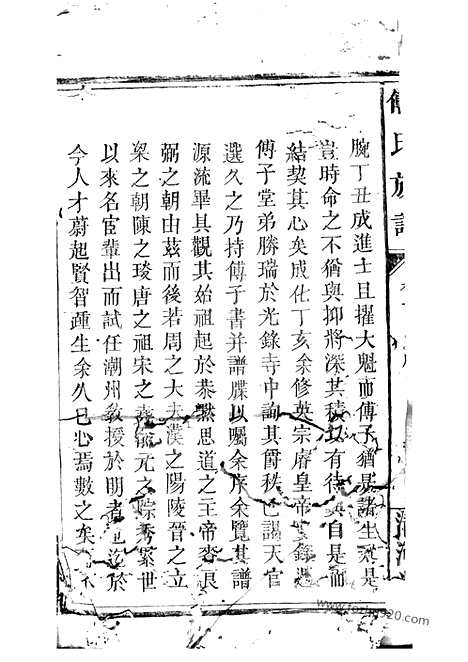 傅氏族譜
腕丁丑成進士且擢大魁而傅子猶是諸生
豈時命之不猶與抑將深其積以有待其自是而
結契其心矣成化丁亥余修英宗睿皇帝實錄
傅子堂弟勝瑞於光錄寺中詢其爵秩已謁天官
選久之乃持傅子書并譜牒以屬余序余覽其譜
源流畢具觀其始祖起於恭默思道之王帝賚良
弼之朝由茲而後若周之大夫漢之陽陵晉之立
梁之朝陳之琰唐之祖宋之堯俞元之 秀累世
以來名宦輩出而試任潮州教授於明者 於
今人才蔚起賢智踵生余久已心焉數之矣
www.fozhu920.com